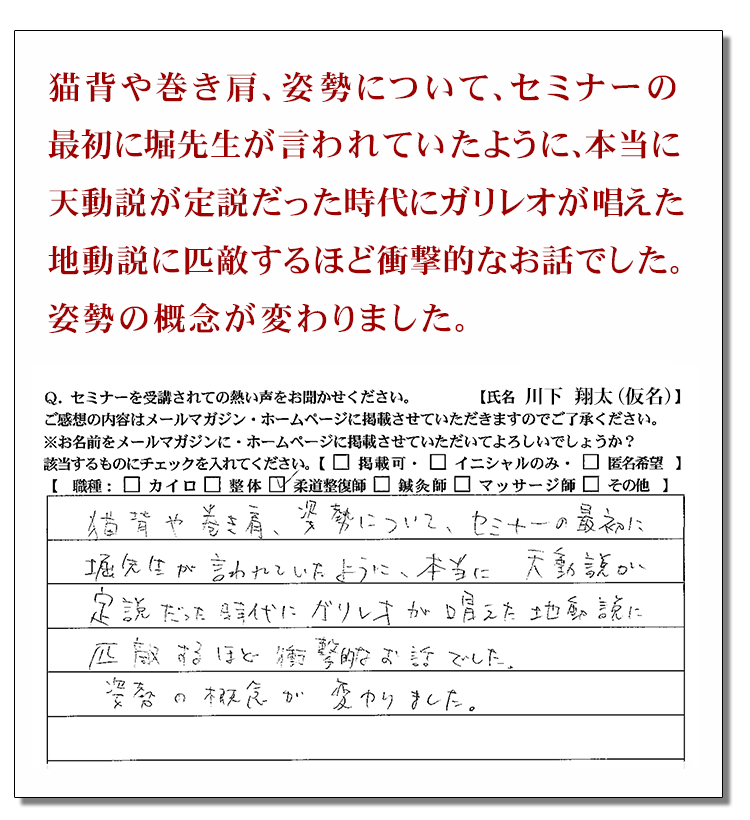 猫背や巻き肩、姿勢について、セミナーの
最初に堀先生が言われていたように、本当に
天動説が定説だった時代にガリレオが唱えた
地動説に匹敵するほど衝撃的なお話でした。
姿勢の概念が変わりました。
Q. セミナーを受講されての熱い声をお聞かせください。 【氏名 川下 翔太(仮名)】
ご感想の内容はメールマガジン・ホームページに掲載させていただきますのでご了承ください。
※お名前をメールマガジンに・ホームページに掲載させていただいてよろしいでしょうか?
該当するものにチェックを入れてください。【 □ 掲載可・ □ イニシャルのみ・ □ 匿名希望 】
【 職種: □ カイロ □ 整体 ☑ 柔道整復師 □ 鍼灸師 □ マッサージ師 □ その他 】
猫背や巻き肩、姿勢について、セミナーの最初に
堀先生が言われていたように、本当に 天動説が
定説だった時代にガリレオが唱えた地動説に
匹敵するほど衝撃的なお話でした。
姿勢の概念が変わりました。